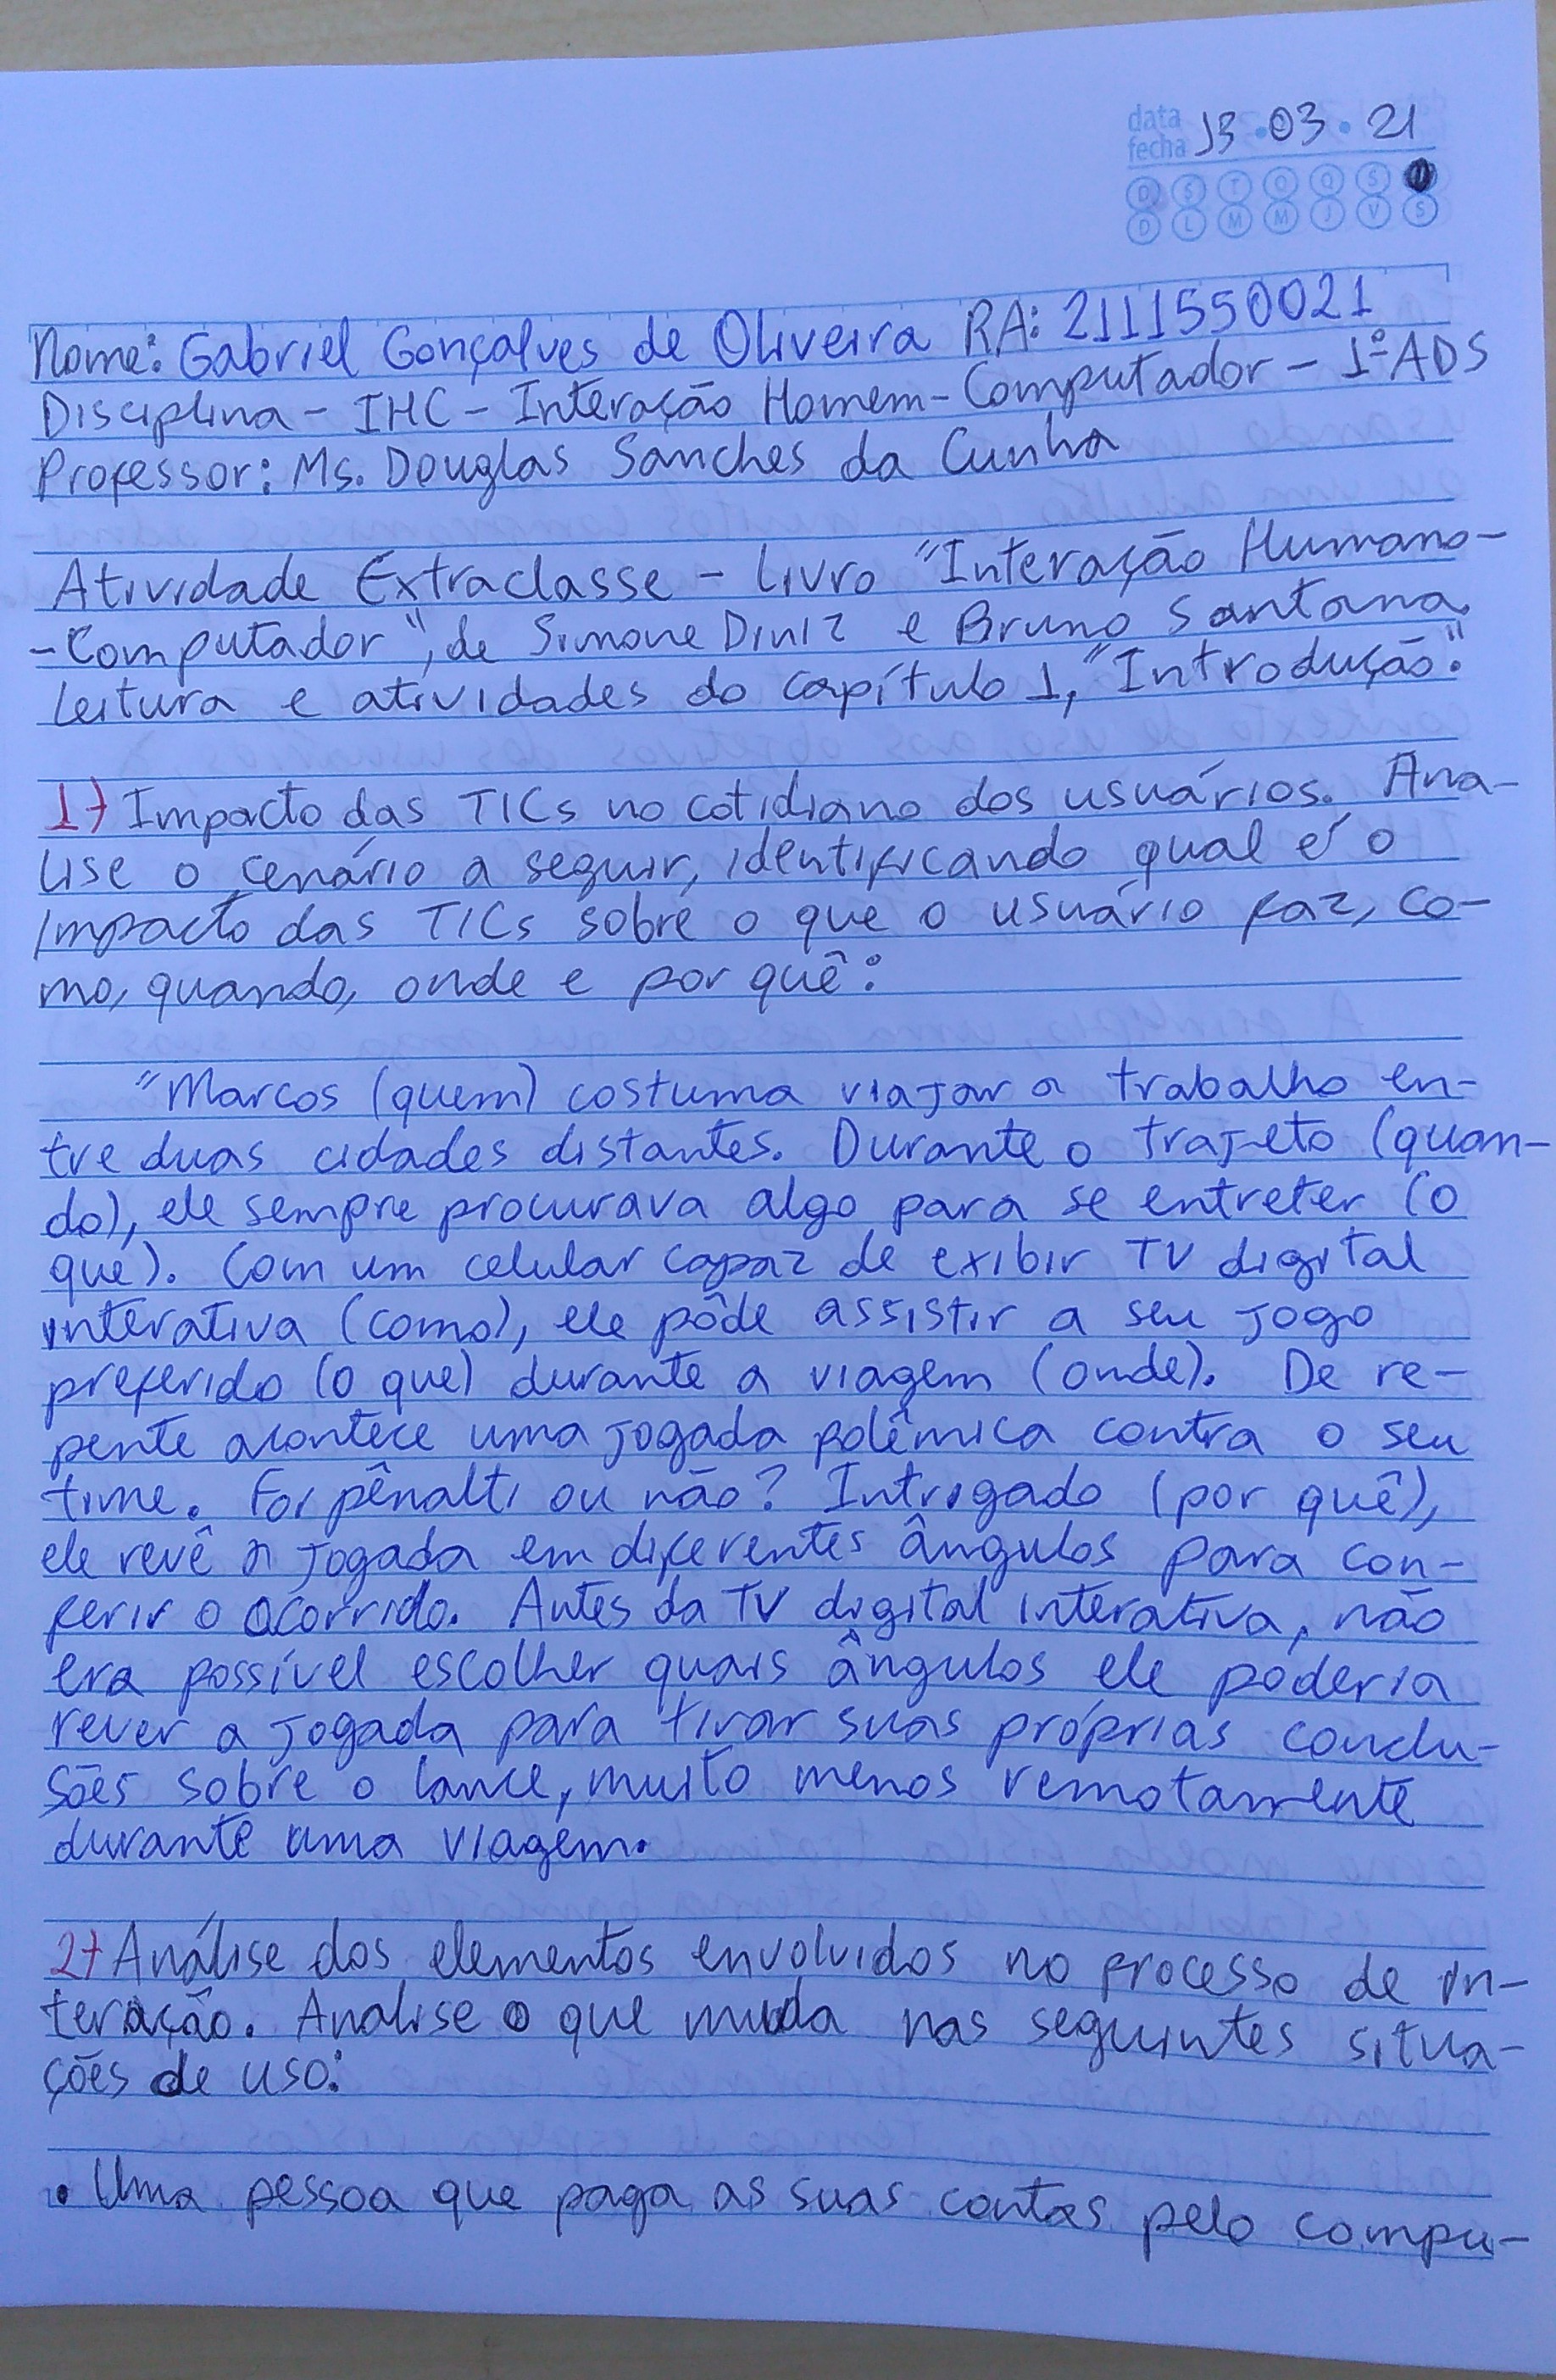 data
fecha 13.03.21
D S T Q Q S
D L M M J V S
Nome: Gabriel Gonçalves de Oliveira RA: 2111550021
Disciplina - IHC - Interação Homem-Computador - 1º ADS
Professor: Ms. Douglas Sanches da Cunha
Atividade Extraclasse - Livro "Interação Humano-
-Computador", de Simone Diniz e Bruno Santana.
Leitura e atividades do capítulo 1, "Introdução".
1) Impacto das TICs no cotidiano dos usuários. Ana-
lise o cenário a seguir, identificando qual é o
impacto das TICs sobre o que o usuário faz, co-
mo, quando, onde e por quê:
"Marcos (quem) costuma viajar a trabalho en-
tre duas cidades distantes. Durante o trajeto (quan-
do), ele sempre procurava algo para se entreter (o
que). Com um celular capaz de exibir TV digital
interativa (como), ele pôde assistir a seu jogo
preferido (o que) durante a viagem (onde). De re-
pente acontece uma jogada polêmica contra o seu
time. Foi pênalti ou não? Intrigado (por quê),
ele revê a jogada em diferentes ângulos para con-
ferir o ocorrido. Antes da TV digital interativa, não
era possível escolher quais ângulos ele poderia
rever a jogada para tirar suas próprias conclu-
sões sobre o lance, muito menos remotamente
durante uma viagem.
2) Análise dos elementos envolvidos no processo de in-
teração. Analise o que muda nas seguintes situa-
ções de uso:
• Uma pessoa que paga as suas contas pelo compu-